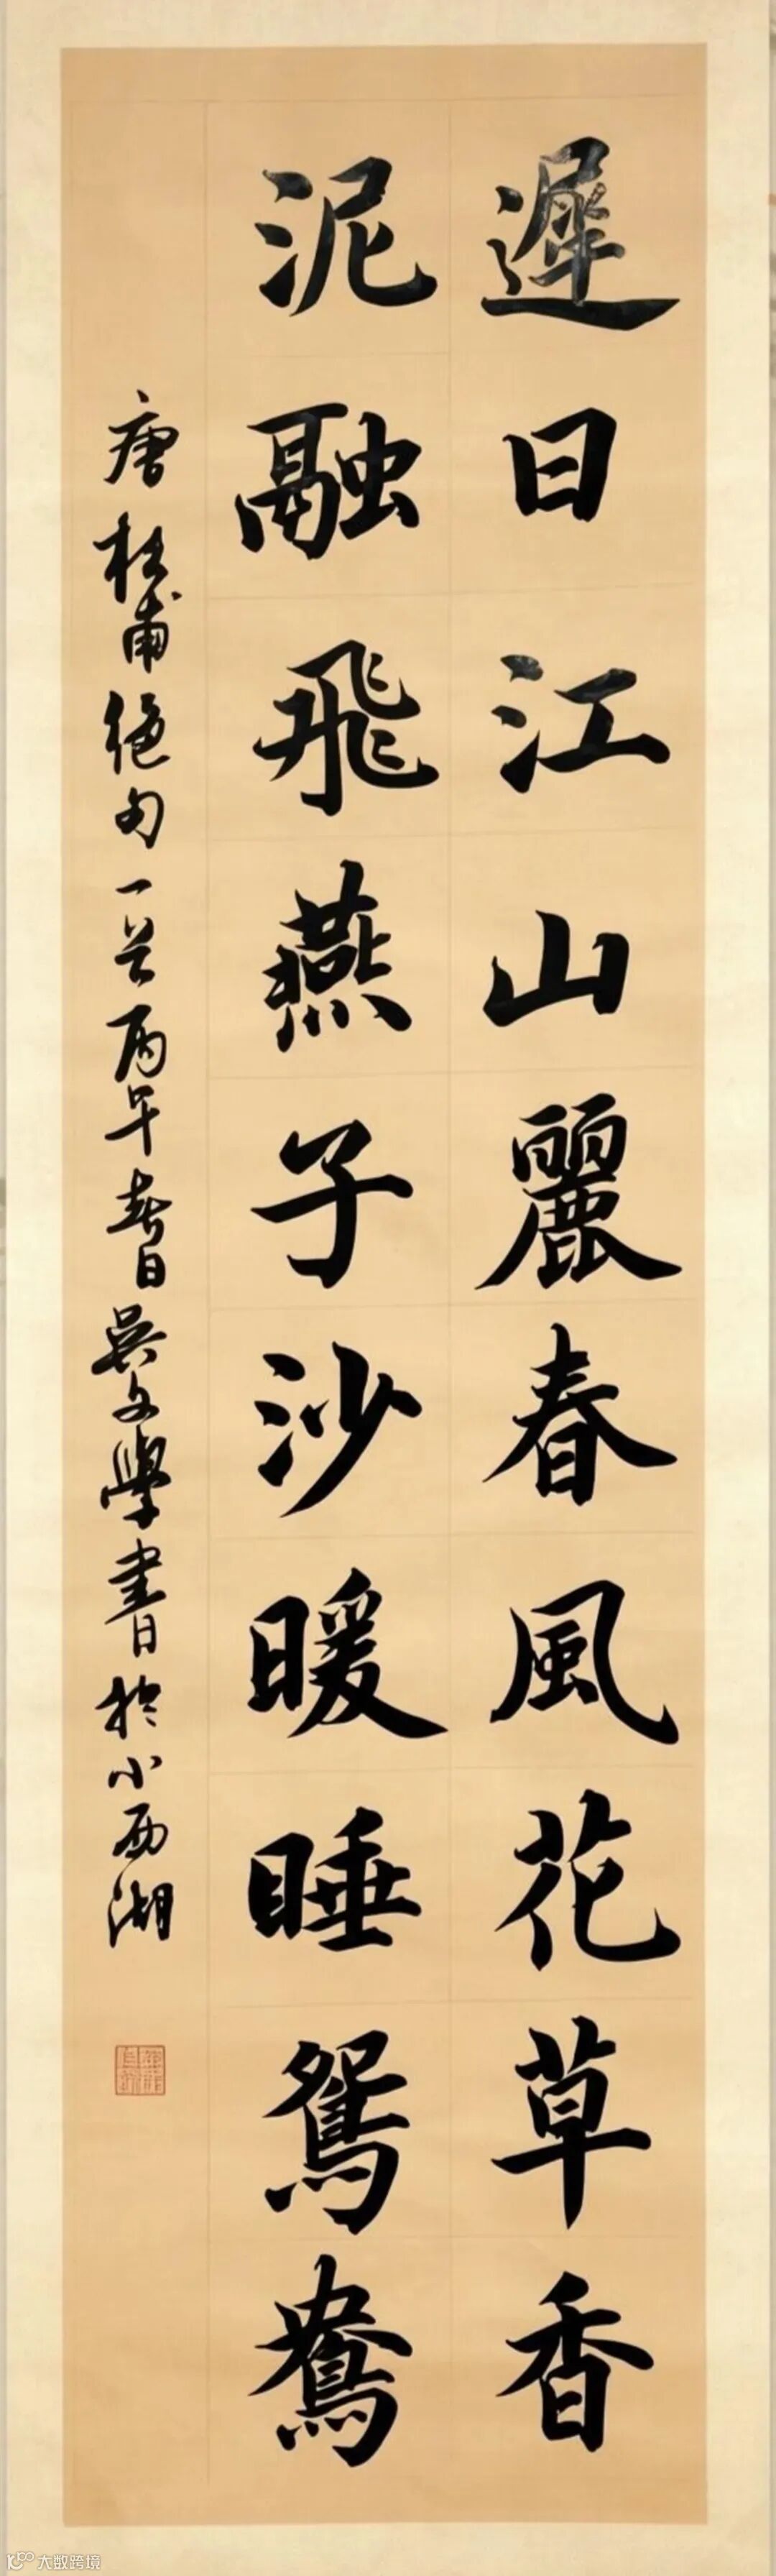 遲日江山麗春風花草香
泥融飛燕子沙暖睡鴛鴦
唐杜甫絕句一首丙午春日吳文學書於小西湖
大数跨境